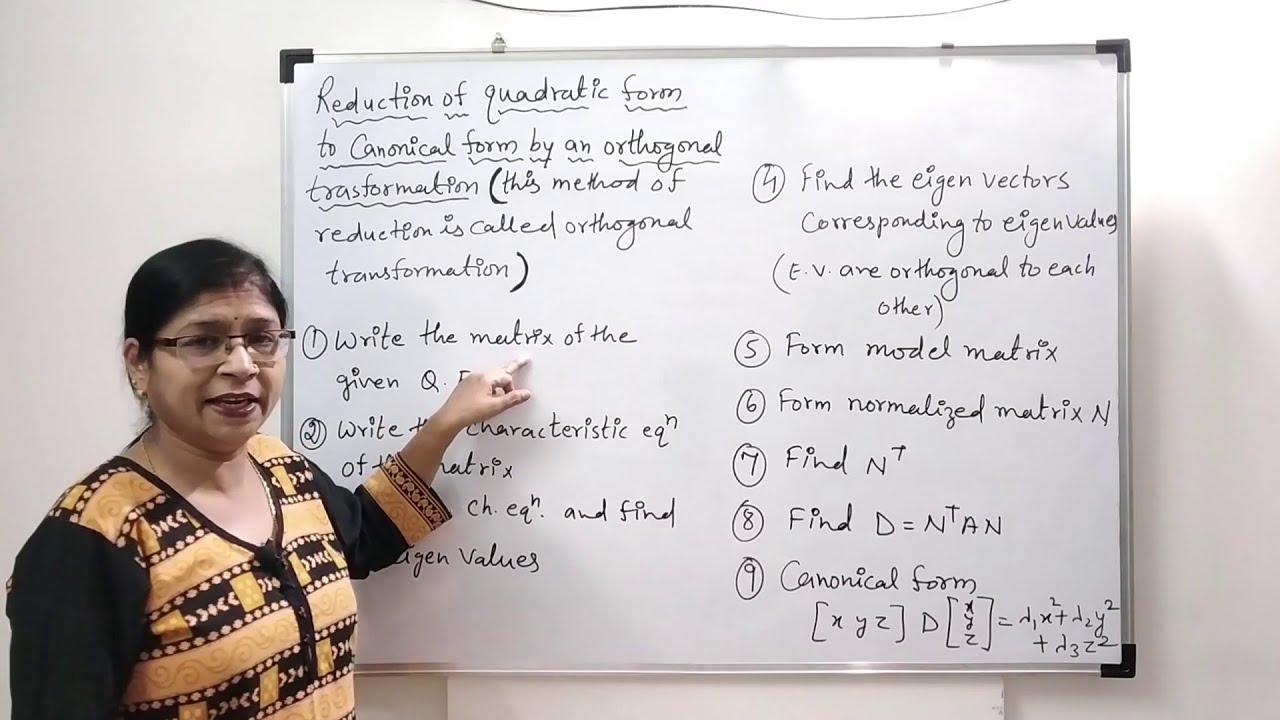 Reduction of quadratic form
to Canonical form by an orthogonal
trasformation (this method of
reduction is called orthogonal
transformation)
① Write the matrix of the
given Q.
② Write the characteristic eqⁿ
of matrix
ch. eqⁿ. and find
eigen values
④ Find the eigen vectors
Corresponding to eigen values
(E.V. are orthogonal to each
other)
⑤ Form model matrix
⑥ Form normalized matrix N
⑦ Find Nᵀ
⑧ Find D = NᵀAN
⑨ Canonical form
[x y z] D [x y z] = λ₁x² + λ₂y²
+ λ₃z²